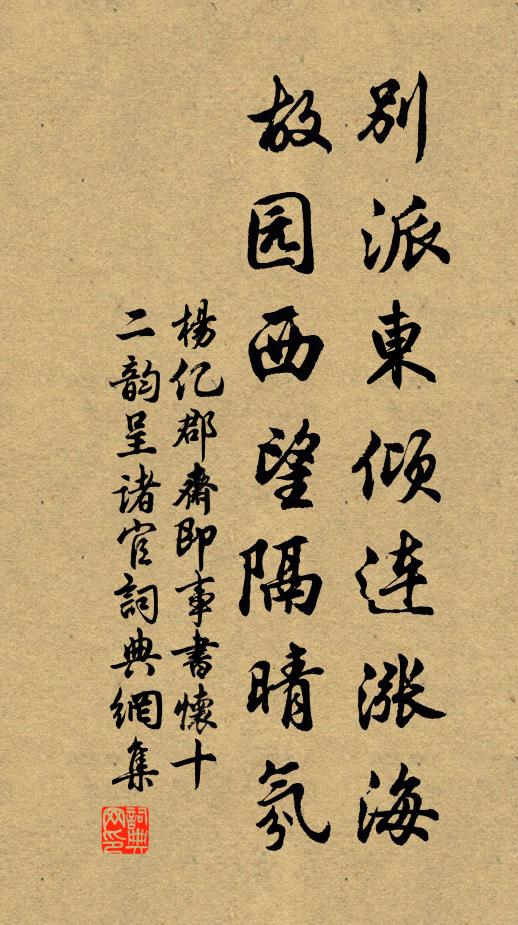 别派東倾连涨海
故园西望隔晴氛
楊亿郡齋即事書懷十
二韵呈诸官詞典網集
詞典網印